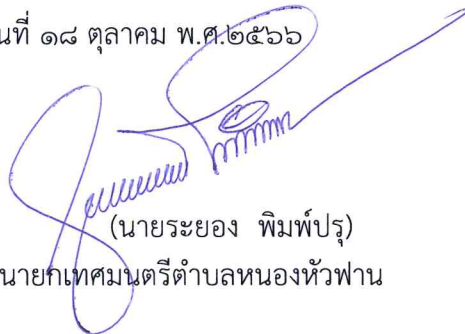 นที่ ๑๘ ตุลาคม พ.ศ.๒๕๖๖
(นายระยอง พิมพ์ปรุ)
นายกเทศมนตรีตำบลหนองหัวฟาน